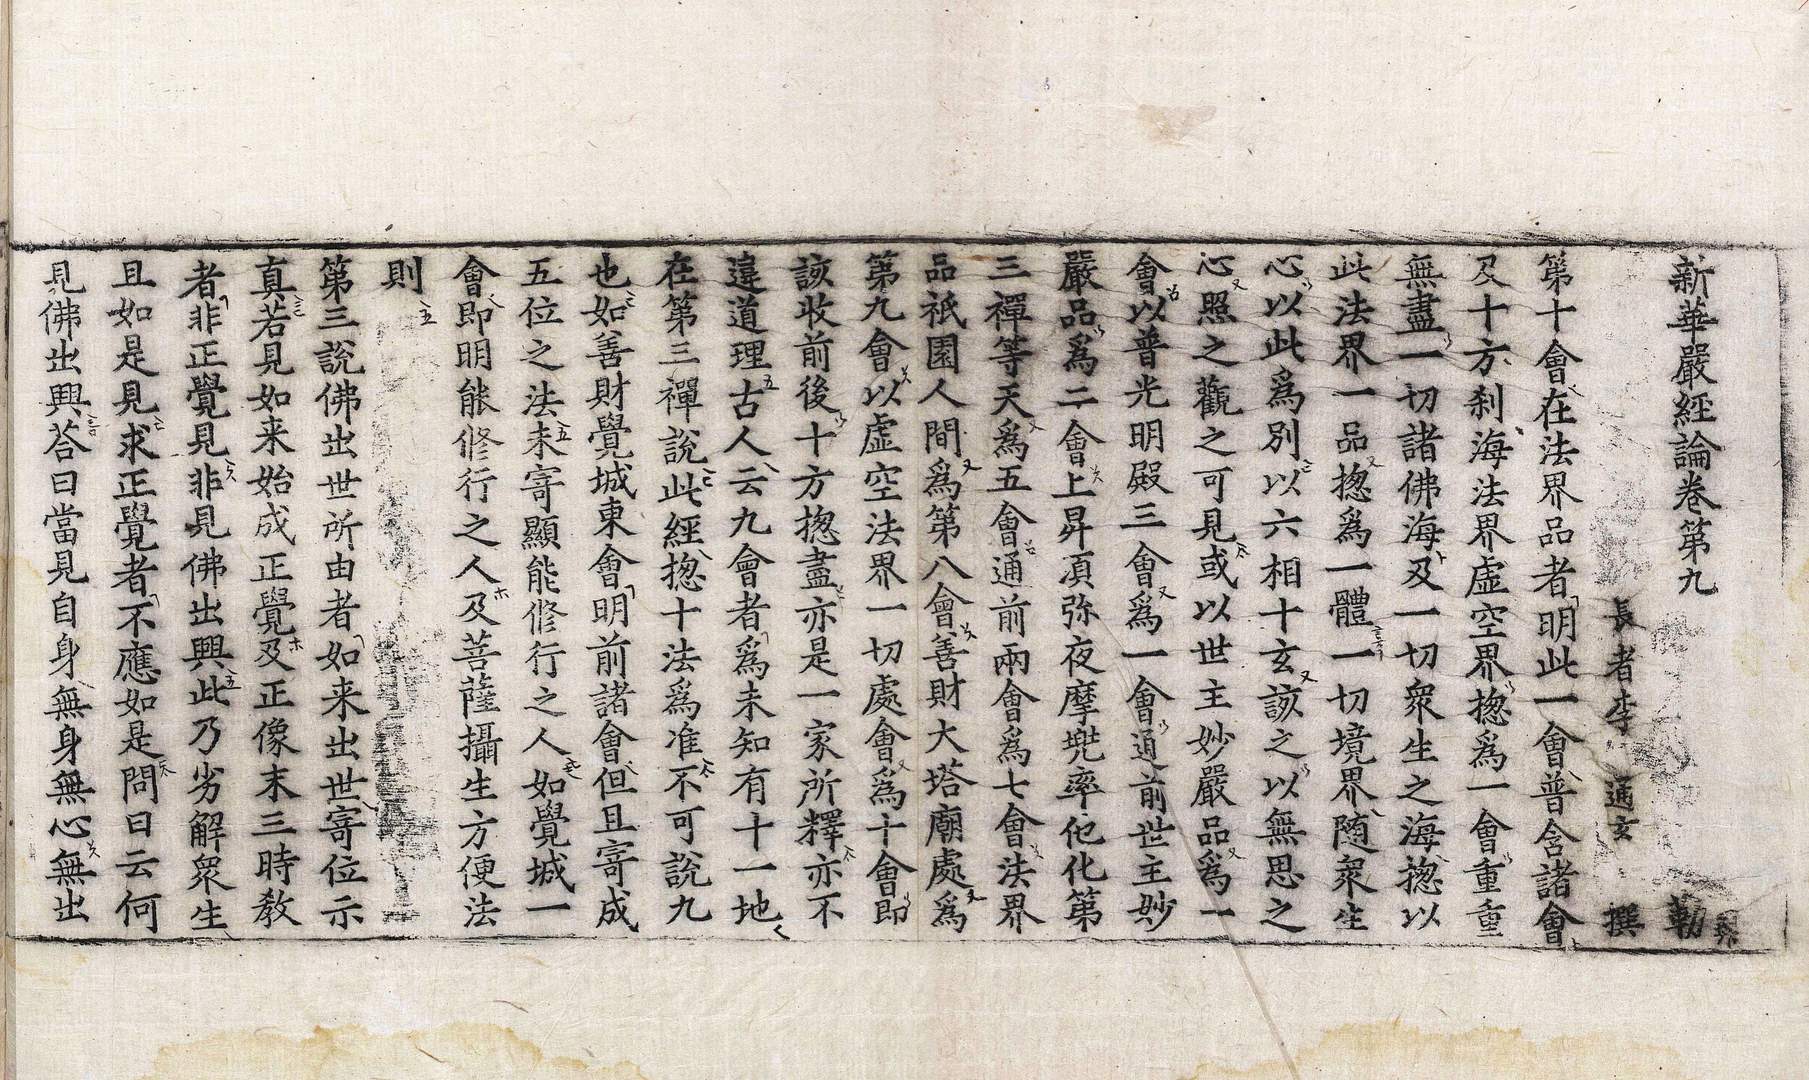 新華嚴經論卷第九 勒
長者李通玄 撰
第十會在法界品者明此一會普含諸會
及十方刹海法界虛空界揔爲一會重重
無盡一切諸佛海及一切衆生之海揔以
此法界一品揔爲一體一切境界随衆生
心以此爲別以六相十玄該之以無思之
心照之觀之可見或以世主妙嚴品爲一
會以普光明殿三會爲一會通前世主妙
嚴品爲二會上昇須弥夜摩兠率他化第
三禪等天爲五會通前兩會爲七會法界
品祇園人間爲第八會善財大塔廟處爲
第九會以虛空法界一切處會爲十會即
該收前後十方揔盡亦是一家所釋亦不
違道理古人云九會者爲未知有十一地
在第三禪說此經揔十法爲准不可說九
也如善財覺城東會明前諸會但且寄成
五位之法未寄顯能修行之人如覺城一
會即明能修行之人及菩薩攝生方便法
則
第三說佛出世所由者如来出世寄位示
真若見如来始成正覺及正像末三時教
者非正覺見非見佛出興此乃劣解衆生
且如是見求正覺者不應如是問曰云何
見佛出興荅曰當見自身無身無心無出